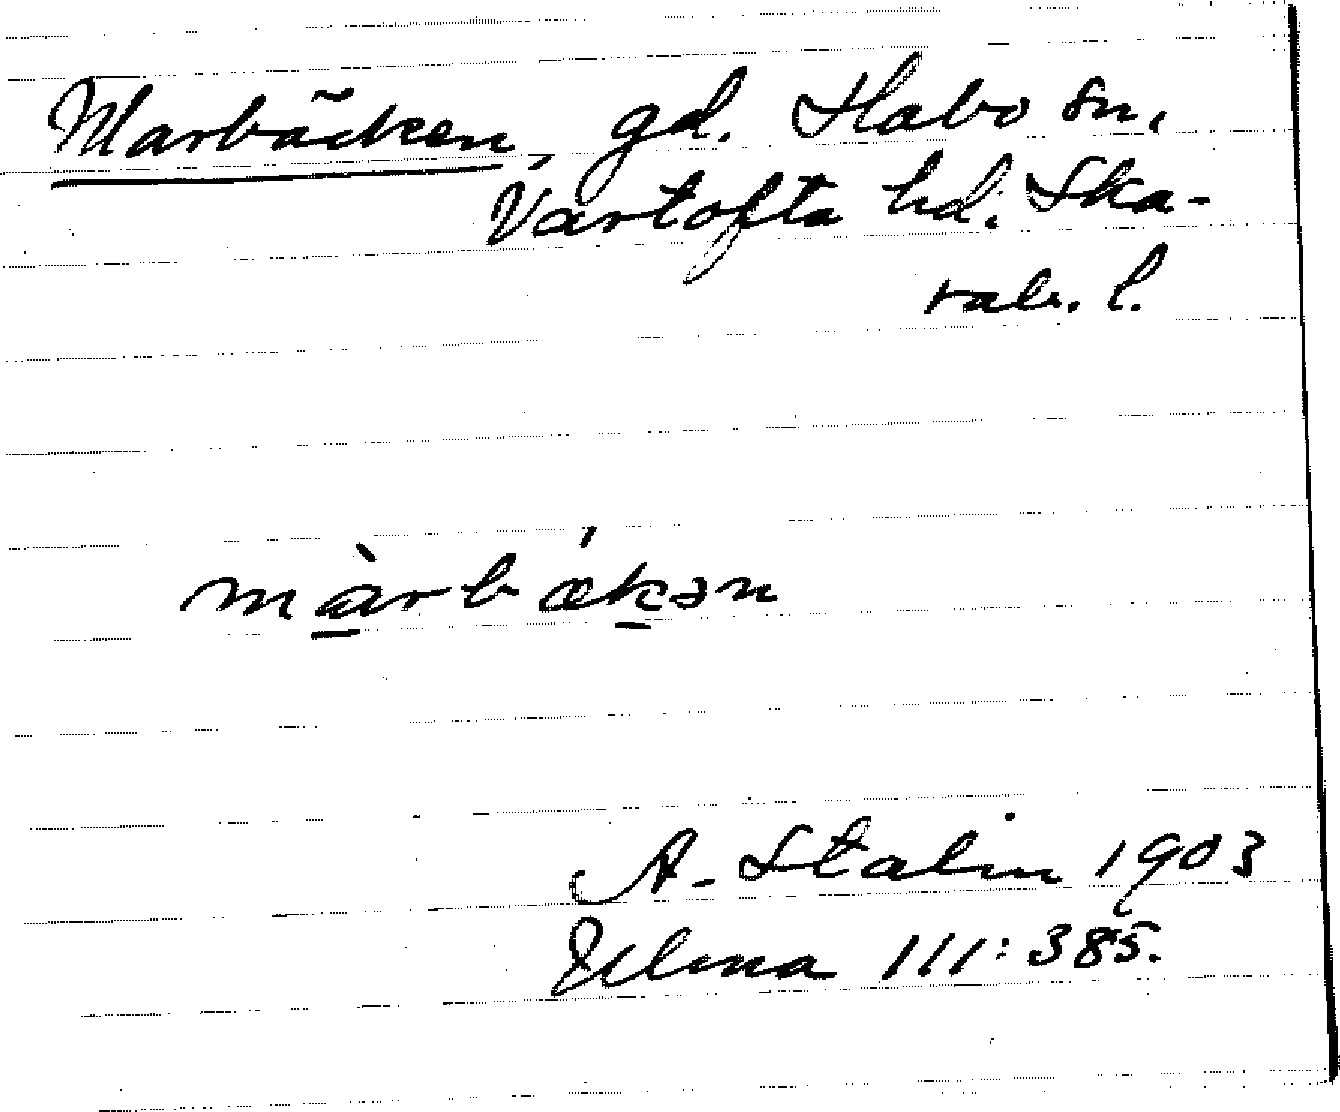 Marbäcken, gd. Habo sn,
Vartofta hd. Ska-
rab. l.
màrbǽkən
A. Stalin 1903
Ulma 111:385.